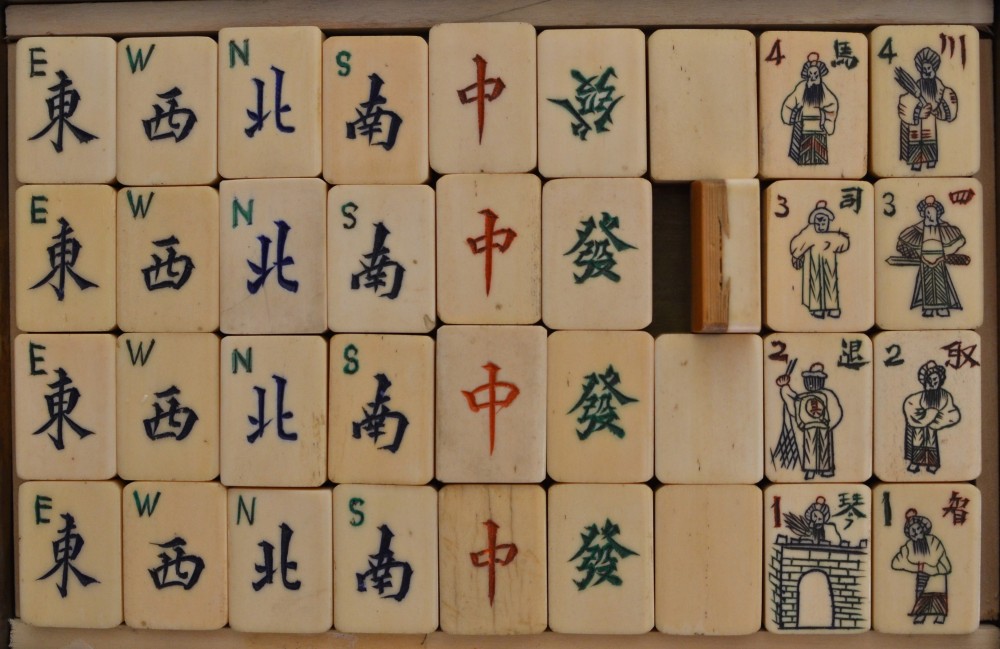 E 東 W 西 N 北 S 南 中 發 4 馬 4 川
E 東 W 西 N 北 S 南 中 發 3 司 3 四
E 東 W 西 N 北 S 南 中 發 2 退 2 取
E 東 W 西 N 北 S 南 中 發 1 琴 1 智